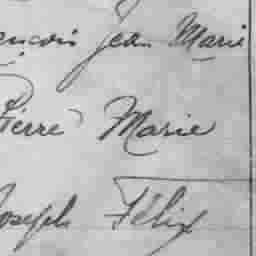 ençois Jean Marie
Pierre Marie
Joseph Félix